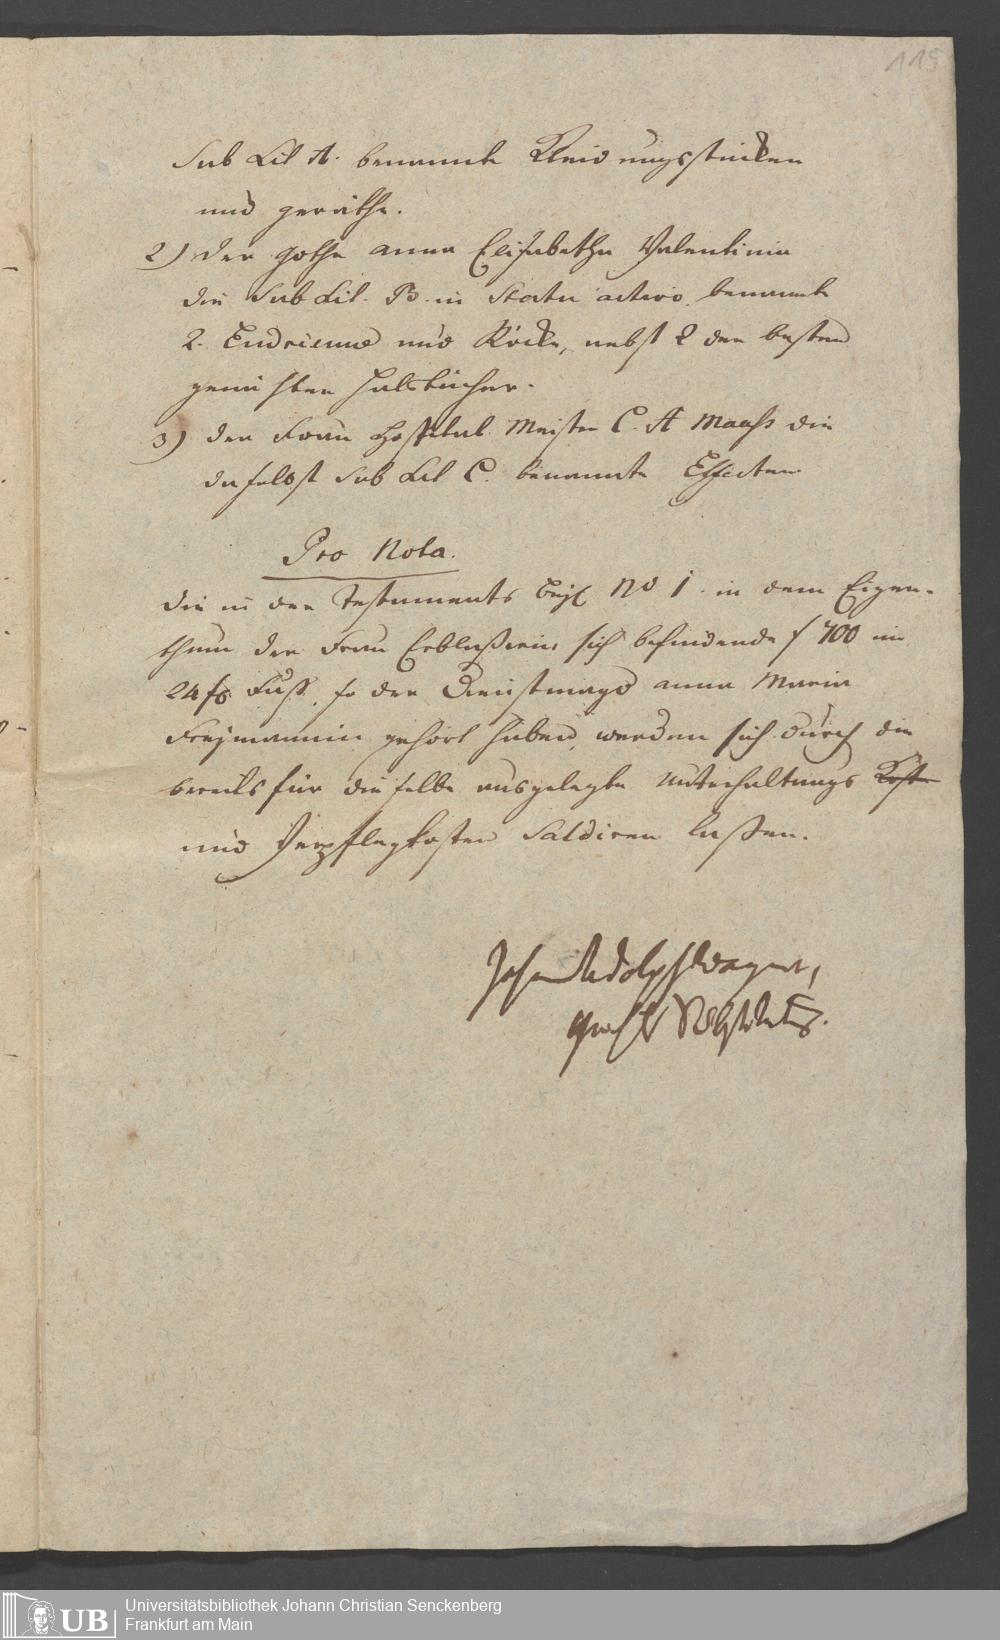 115
Sub Lit A. benannte Kleidungsstücken
und geräthe.
2) der Gothe Anna Elisabetha Valentinin
die Sub Lit. B. in Statu activo benannte
2. und Röcke, nebst 2 der besten
Halstücher.
3) der Frau Hospital Meister C. A Maass die
daselbst Sub Lit C. benannte Effecten
Pro Nota.
die in der Testaments Beyl No 1. in dem Eigen-
thum der Frau Erblasserin sich befindende f 700 im
24 fl. Fuss, so der Dienstmagd Anna Maria
Freymannin gehört haben, werden sich durch die
bereits für dieselbe ausgelegte Unterhaltungs Kost
und Verpflegkosten Saldiren lassen.
Johann Adolph Wagner,
UB
Universitätsbibliothek Johann Christian Senckenberg
Frankfurt am Main